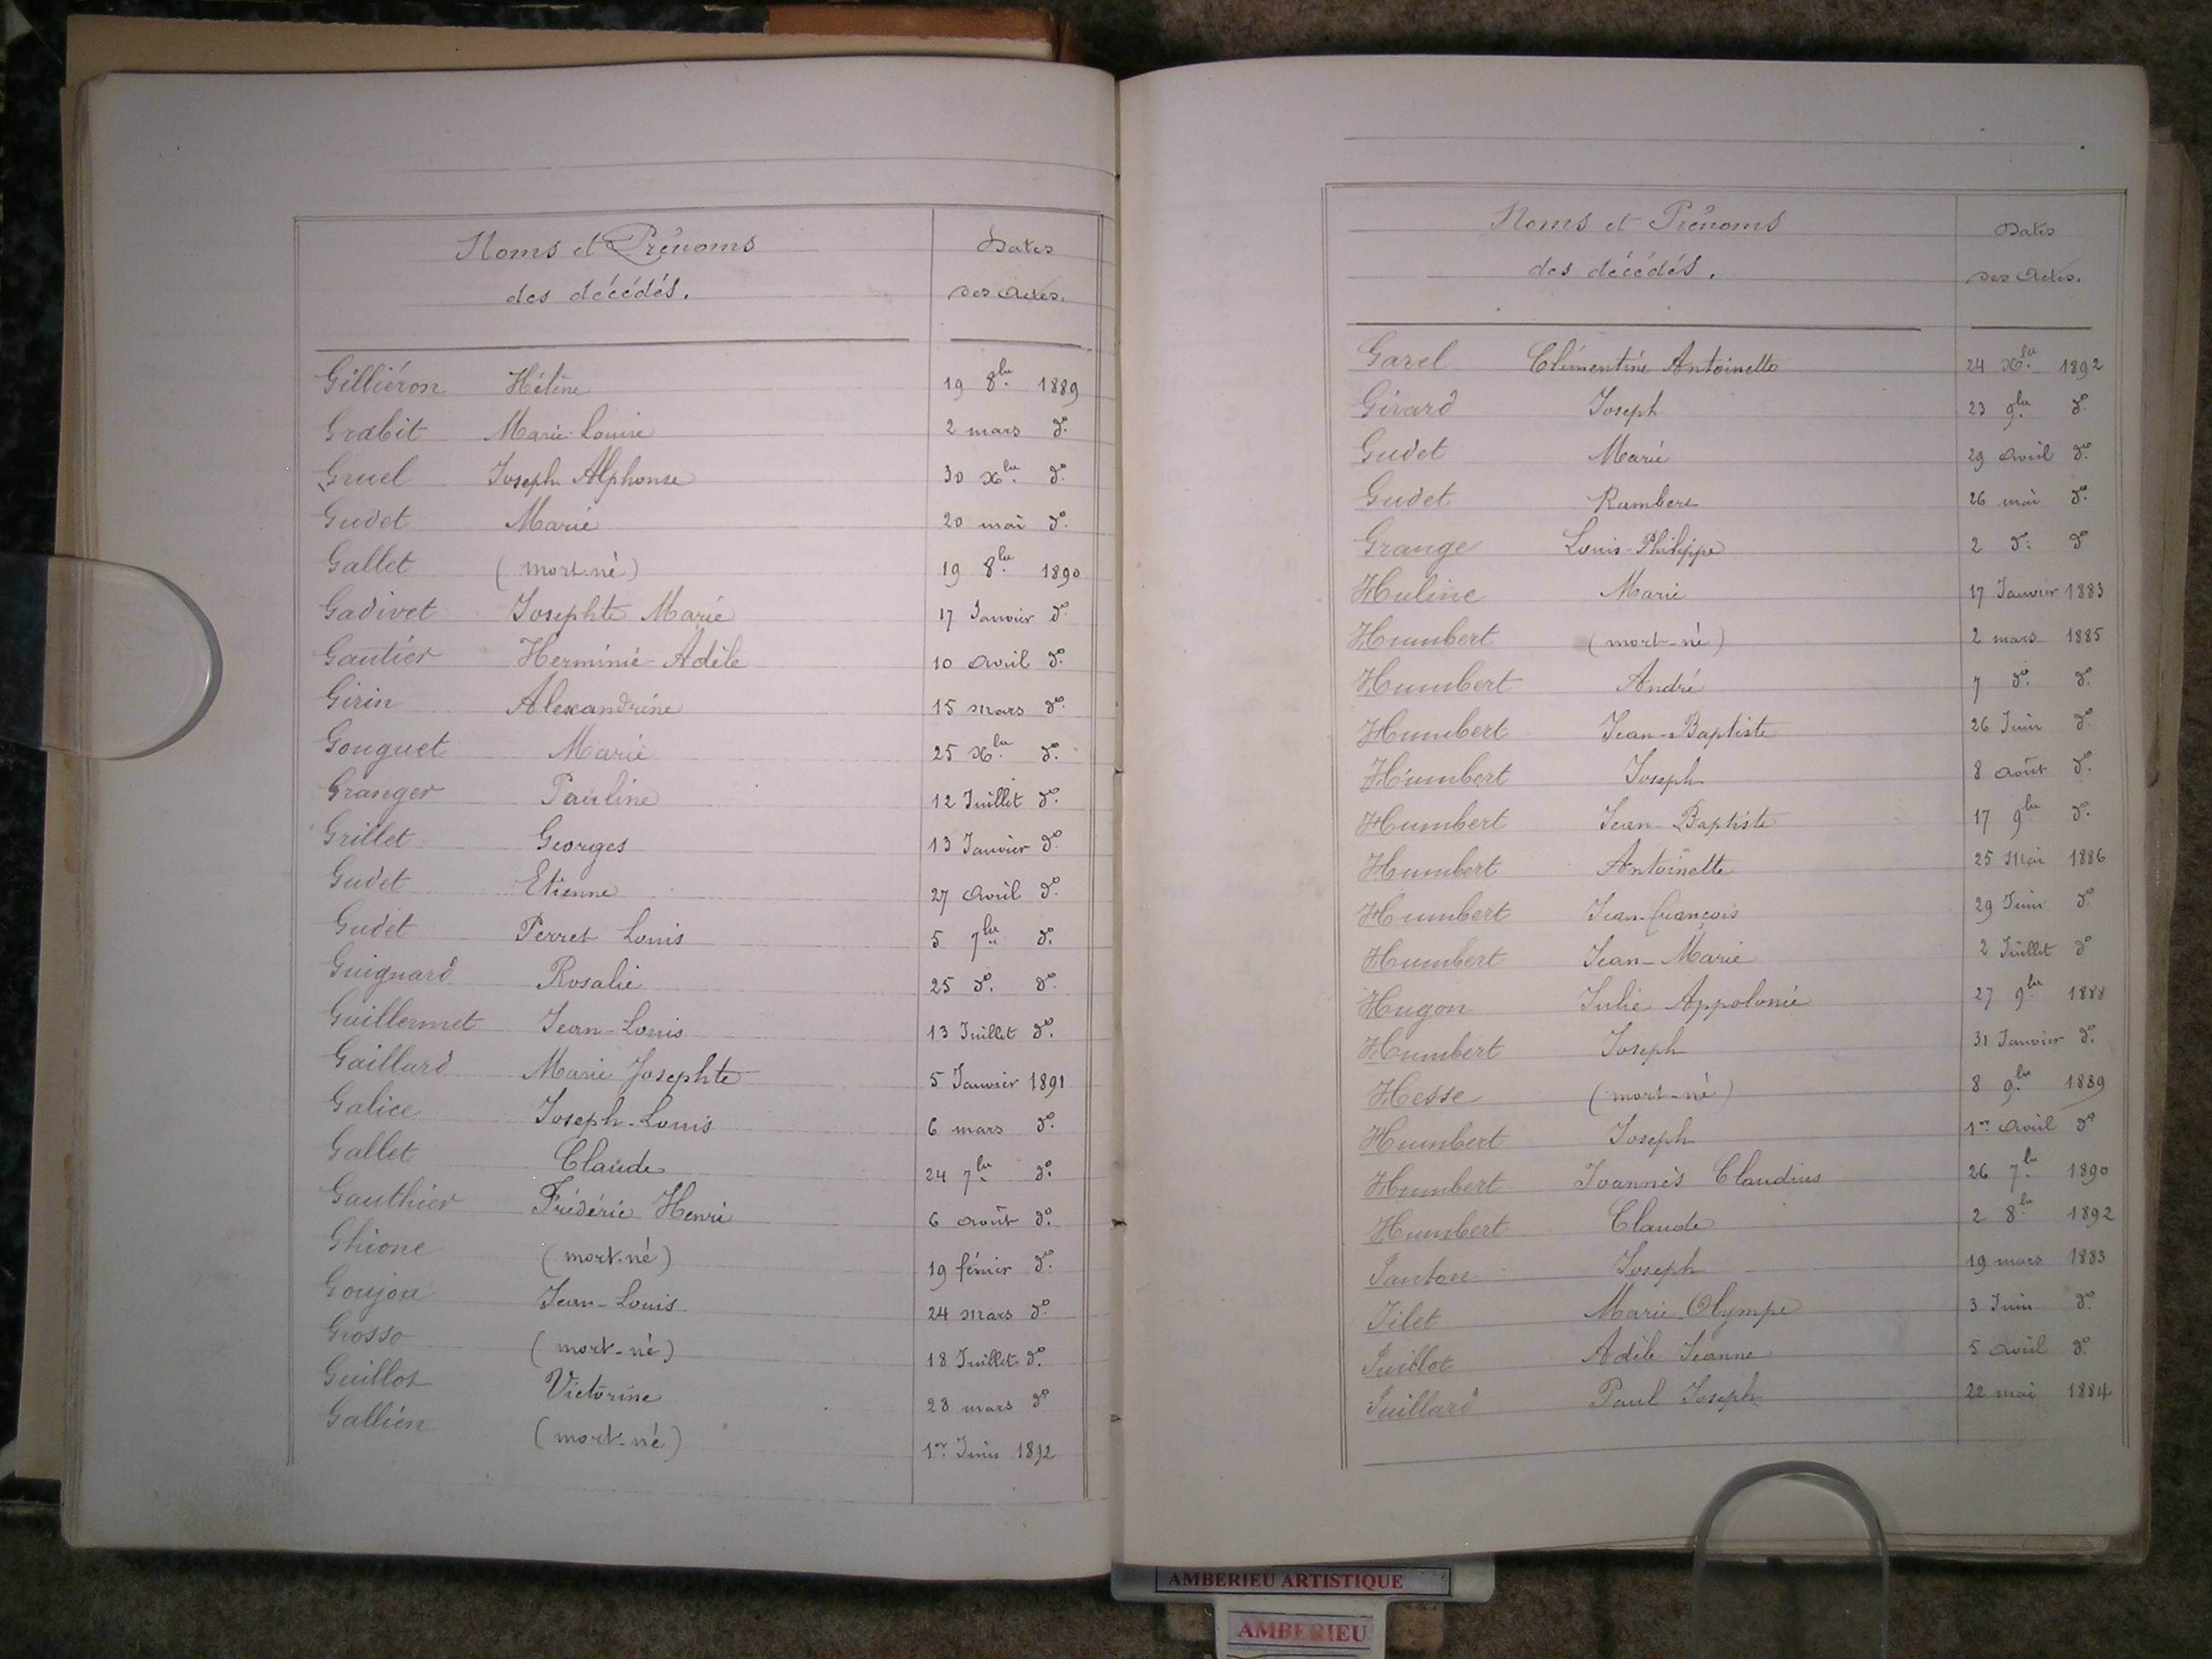 Noms et Prénoms
des décédés.
Dates
des Actes.
Gilliéron Hélène 19 8bre 1889
Grabit Marie-Louise 2 mars do.
Gruel Joseph Alphonse 30 Xbre do.
Gudet Marie 20 mai do.
Gallet (mort-né) 19 8bre 1890
Gadivet Josephte Marie 17 Janvier do.
Gautier Herminie-Adèle 10 Avril do.
Girin Alexandrine 15 Mars do.
Gouguet Marie 25 Xbre do.
Granger Pauline 12 Juillet do.
Grillet Georges 13 Janvier do.
Gudet Etienne 27 Avril do.
Gudet Perret Louis 5 7bre do.
Guignard Rosalie 25 do. do.
Guillermet Jean-Louis 13 Juillet do.
Gaillard Marie Josephte 5 Janvier 1891
Galice Joseph-Louis 6 mars do.
Gallet Claude 24 7bre do.
Gauthier Frédéric Henri 6 Août do.
Ghione (mort-né) 19 février do.
Goujon Jean-Louis 24 Mars do.
Grosso (mort-né) 18 Juillet do.
Guillot Victorine 28 mars do
Gallien (mort-né) 1er Juin 1892
Noms et Prénoms
des décédés.
Dates
des Actes.
Garel Clémentine Antoinette 24 Xbre 1892
Girard Joseph 23 9bre do.
Gudet Marie 29 Avril do.
Gudet Rambert 26 mai do.
Grange Louis-Philippe 2 do. do
Huline Marie 17 Janvier 1883
Humbert (mort-né) 2 mars 1885
Humbert André 7 do. do.
Humbert Jean-Baptiste 26 Juin do.
Humbert Joseph 8 août do.
Humbert Jean-Baptiste 17 9bre do.
Humbert Antoinette 25 Mai 1886
Humbert Jean-françois 29 Juin do
Humbert Jean-Marie 2 Juillet do
Hugon Julie Appolonie 27 9bre 1888
Humbert Joseph 31 Janvier do.
Hesse (mort-né) 8 9bre 1889
Humbert Joseph 1er Avril do
Humbert Joannès Claudius 26 7bre 1890
Humbert Claude 2 8bre 1892
Janton Joseph 19 mars 1883
Jilet Marie Olympe 3 Juin do.
Juillot Adèle Jeanne 5 Avril do.
Juillard Paul Joseph 22 mai 1884
AMBERIEU ARTISTIQUE
AMBERIEU